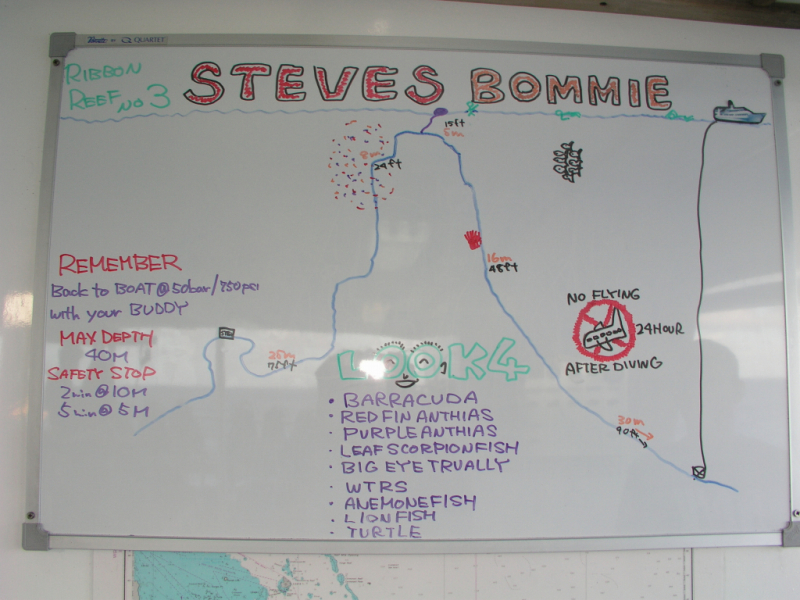 QUARTET
RIBBON
REEF NO 3
STEVES BOMMIE
15ft
5m
8m
24ft
16m
48ft
REMEMBER
Back to BOAT @ 50bar/750psi
with your BUDDY
MAX DEPTH
40M
SAFETY STOP
2min @ 10M
5min @ 5M
25m
75ft
NO FLYING
24HOUR
AFTER DIVING
LOOK 4
• BARRACUDA
• RED FIN ANTHIAS
• PURPLE ANTHIAS
• LEAF SCORPIONFISH
• BIG EYE TRUALLY
• WTRS
• ANEMONEFISH
• LIONFISH
• TURTLE
30m
90ft